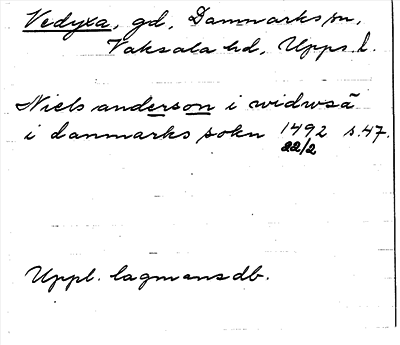 Vedyxa, gd, Danmarks sn,
Vaksala hd, Upps. l.
Niels anderson i widwsā
i danmarks sokn 1492 s. 47.
22/2
Uppl. lagmansdb.